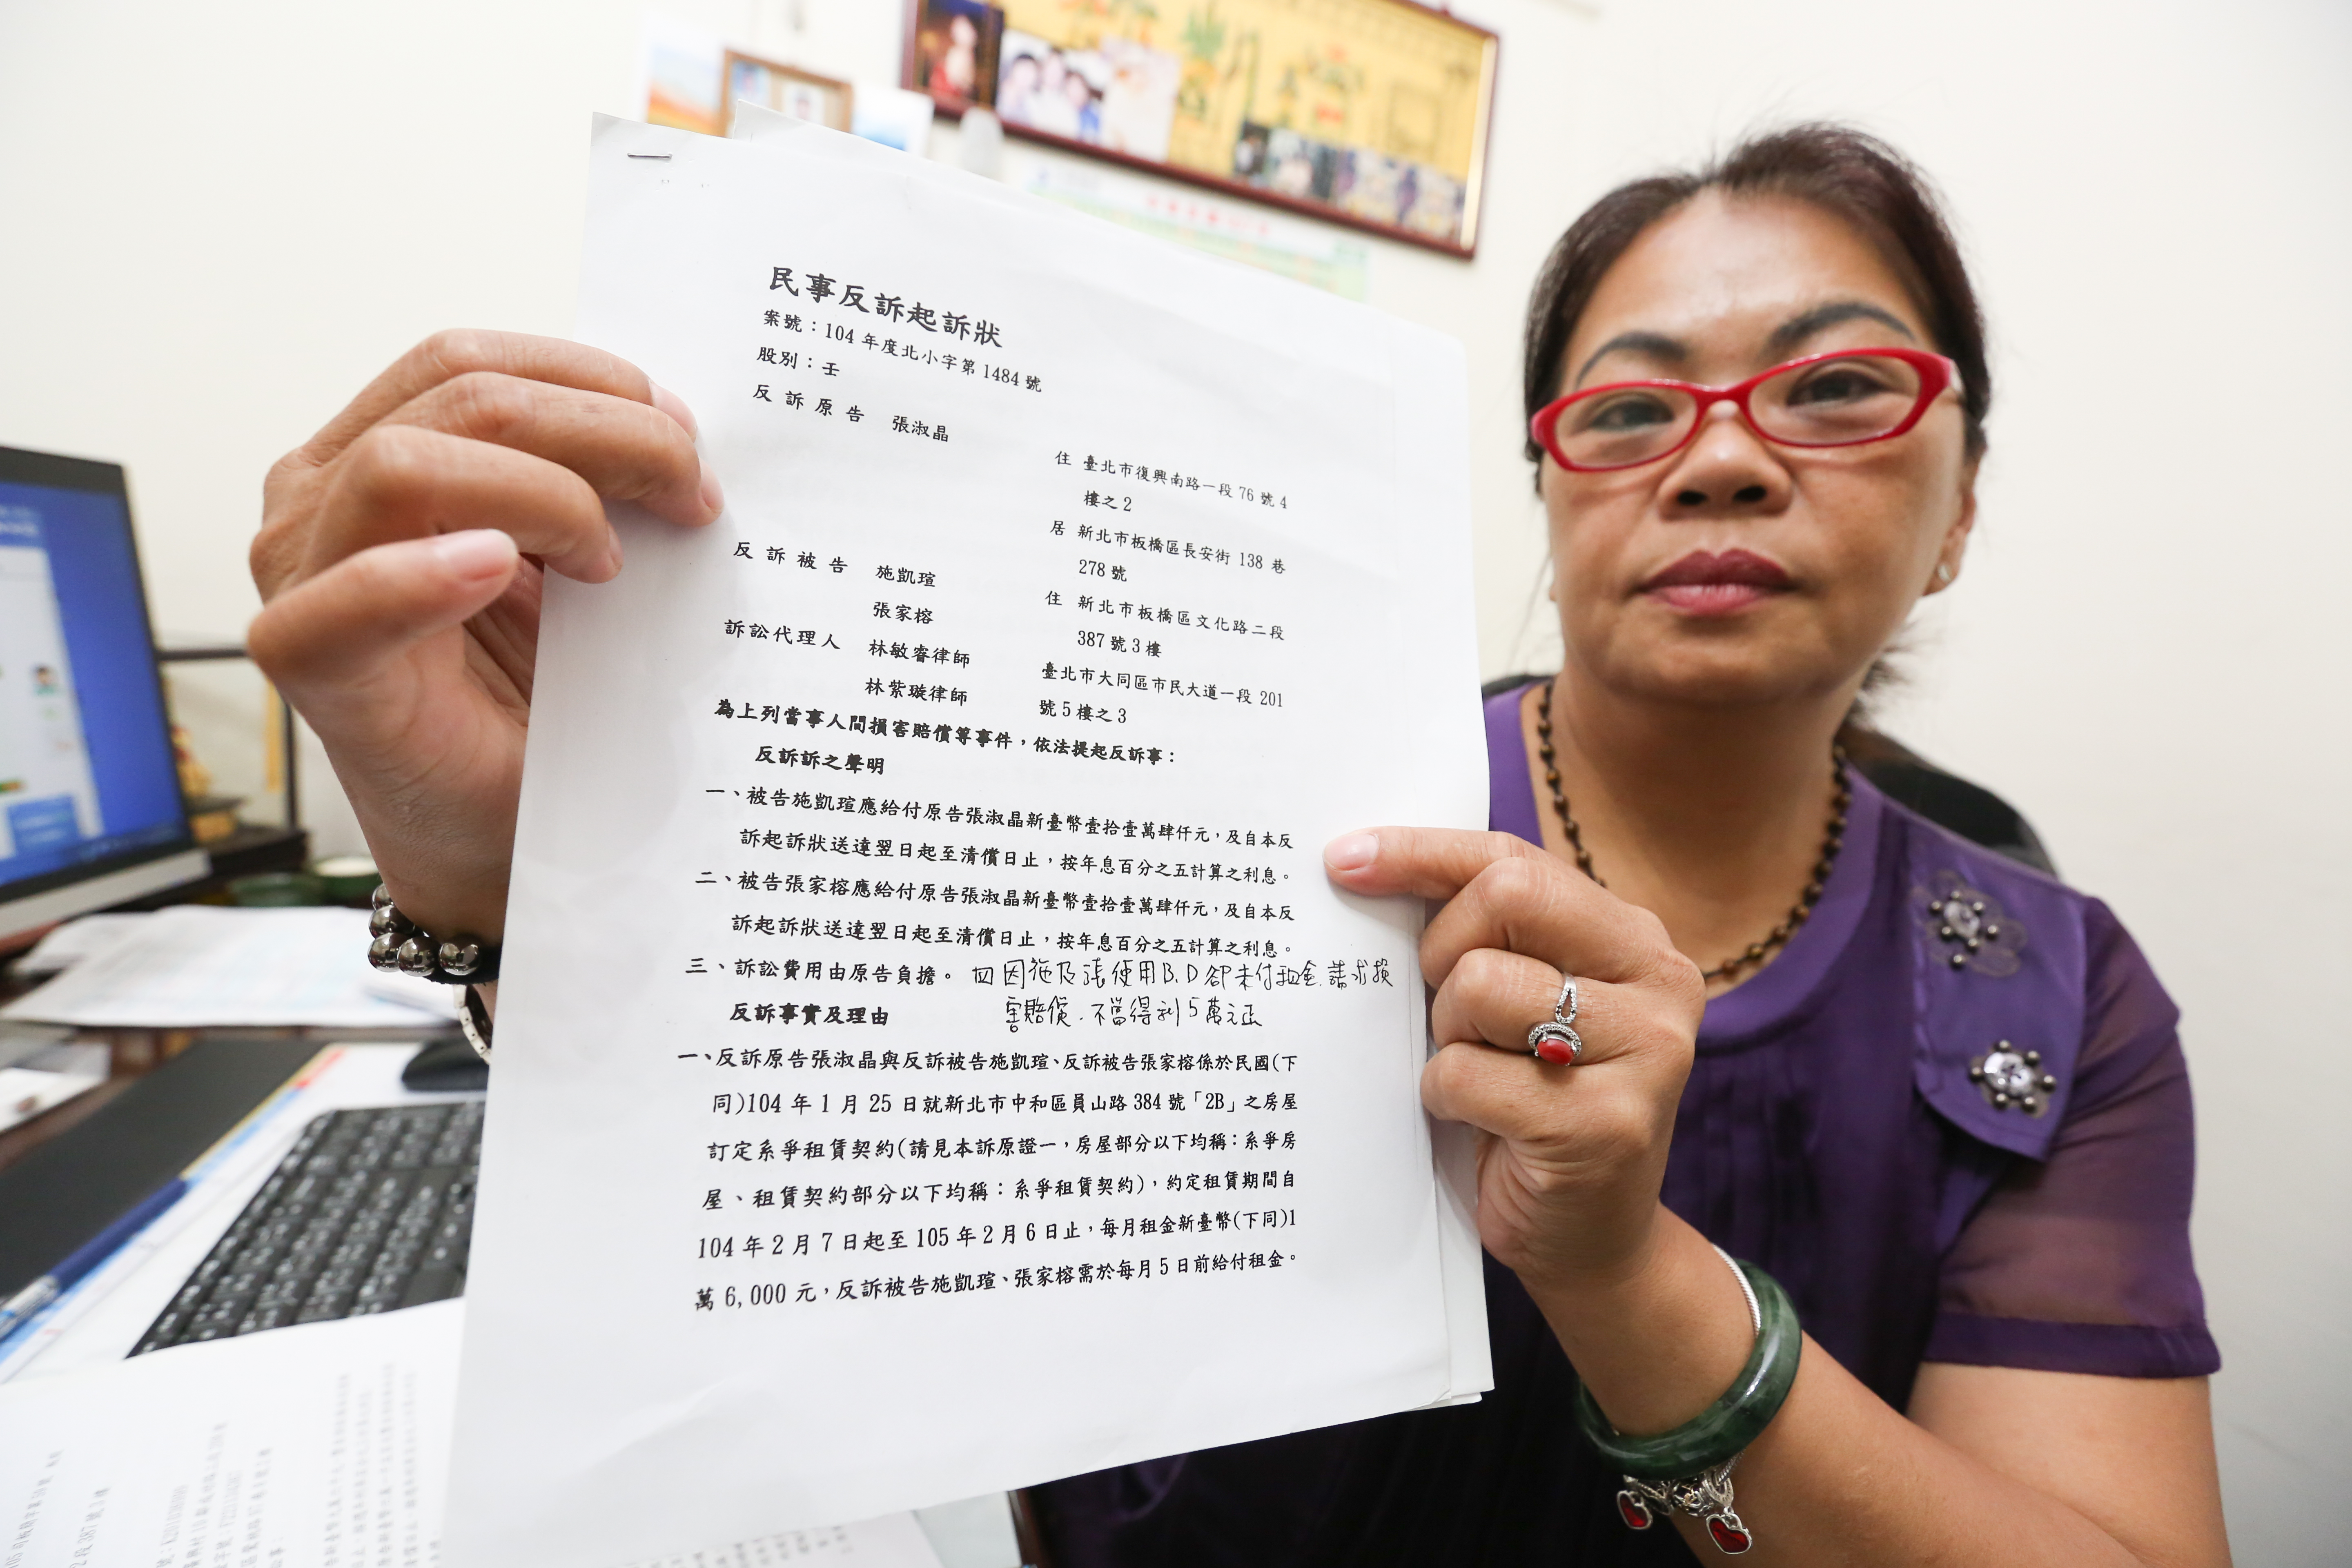 民事反訴起訴狀
案號：104 年度北小字第 1484 號
股別：壬
反訴原告 張淑晶
住 臺北市復興南路一段 76 號 4
樓之 2
居 新北市板橋區長安街 138 巷
278 號
反訴被告 施凱瑄
住 新北市板橋區文化路二段
張家榕
387 號 3 樓
訴訟代理人 林敏睿律師
臺北市大同區市民大道一段 201
林紫璇律師
號 5 樓之 3
為上列當事人間損害賠償等事件，依法提起反訴事：
反訴訴之聲明
一、被告施凱瑄應給付原告張淑晶新臺幣壹拾壹萬肆仟元，及自本反
訴起訴狀送達翌日起至清償日止，按年息百分之五計算之利息。
二、被告張家榕應給付原告張淑晶新臺幣壹拾壹萬肆仟元，及自本反
訴起訴狀送達翌日起至清償日止，按年息百分之五計算之利息。
三、訴訟費用由原告負擔。 四因施及張使用B.D卻未付租金.請求損
反訴事實及理由 害賠償.不當得利5萬元正
一、反訴原告張淑晶與反訴被告施凱瑄、反訴被告張家榕係於民國(下
同)104 年 1 月 25 日就新北市中和區員山路 384 號「2B」之房屋
訂定系爭租賃契約(請見本訴原證一，房屋部分以下均稱：系爭房
屋、租賃契約部分以下均稱：系爭租賃契約)，約定租賃期間自
104 年 2 月 7 日起至 105 年 2 月 6 日止，每月租金新臺幣(下同)1
萬 6,000 元，反訴被告施凱瑄、張家榕需於每月 5 日前給付租金。